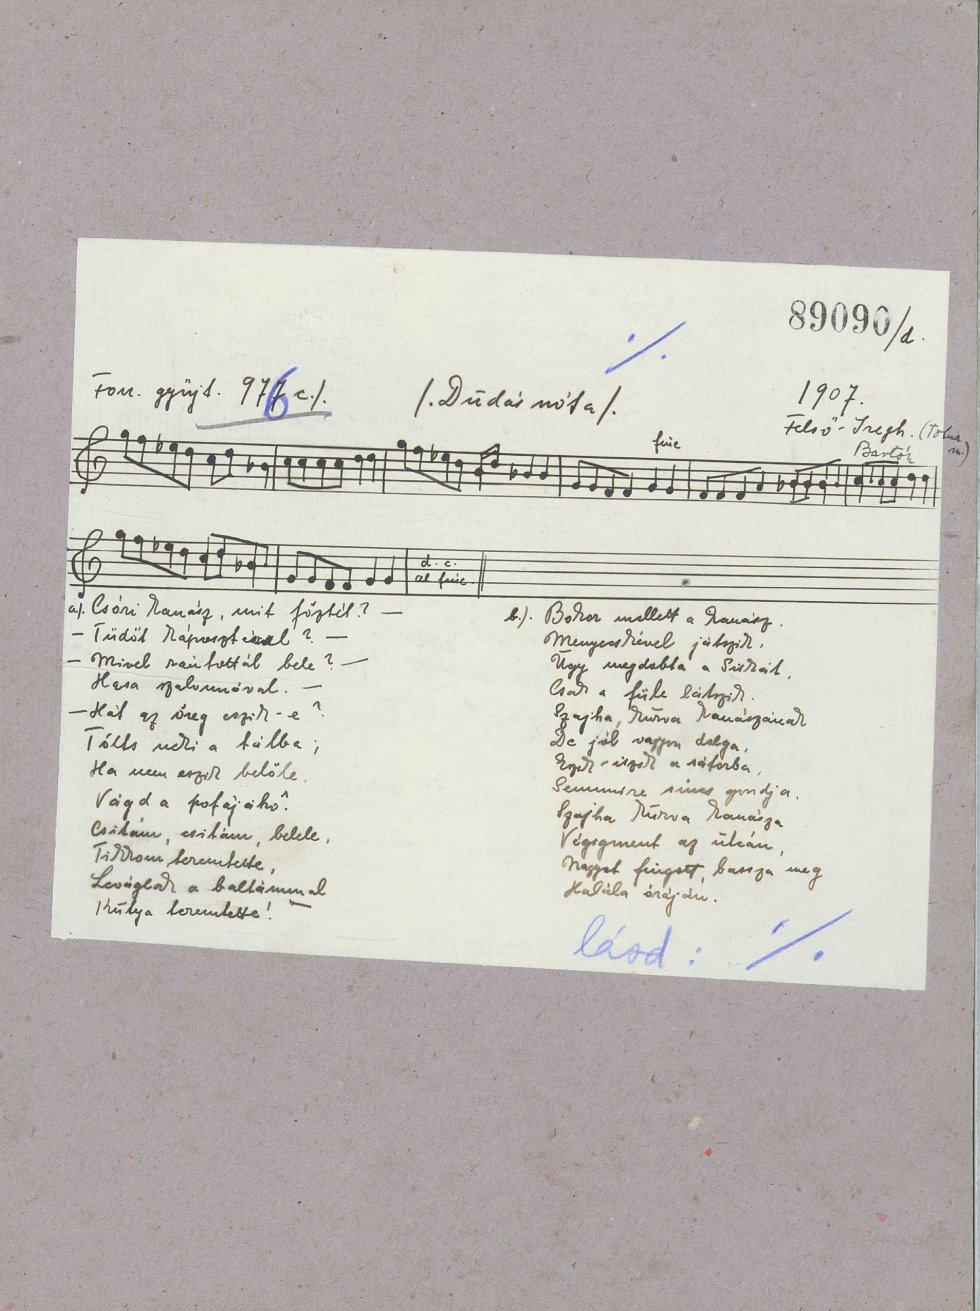 89090/d.
Fon. gyűjt. 976 c./.
/.Dudás nóta/.
1907.
Felső-Iregh. (Tolna m.)
Bartók
fine
d. c.
al fine
a/. Csóri kanász, mit főztél? —
— Tüdőt káposztával? —
— Mivel rántottál bele? —
Hasa szalonnával. —
— Hát az öreg eszik-e?
Tölts neki a tálba;
Ha nem eszik belőle,
Vágd a pofájáhó!
Csitám, csitám, belele,
Tikkom teremtette,
Leváglak a baltámmal
Kutya teremtette! —
b./. Bokor mellett a kanász.
Menyecskével játszik,
Úgy megdobta a
Csak a füle látszik.
Szajha, kurva kanászának
De jól vagyon dolga,
Eszik-iszik a sátorba,
Semmire sincs gondja.
Szajha kurva kanásza
Végigment az utcán,
Nagyot fingott, bassza meg
Halála óráján.
lásd: ·/.